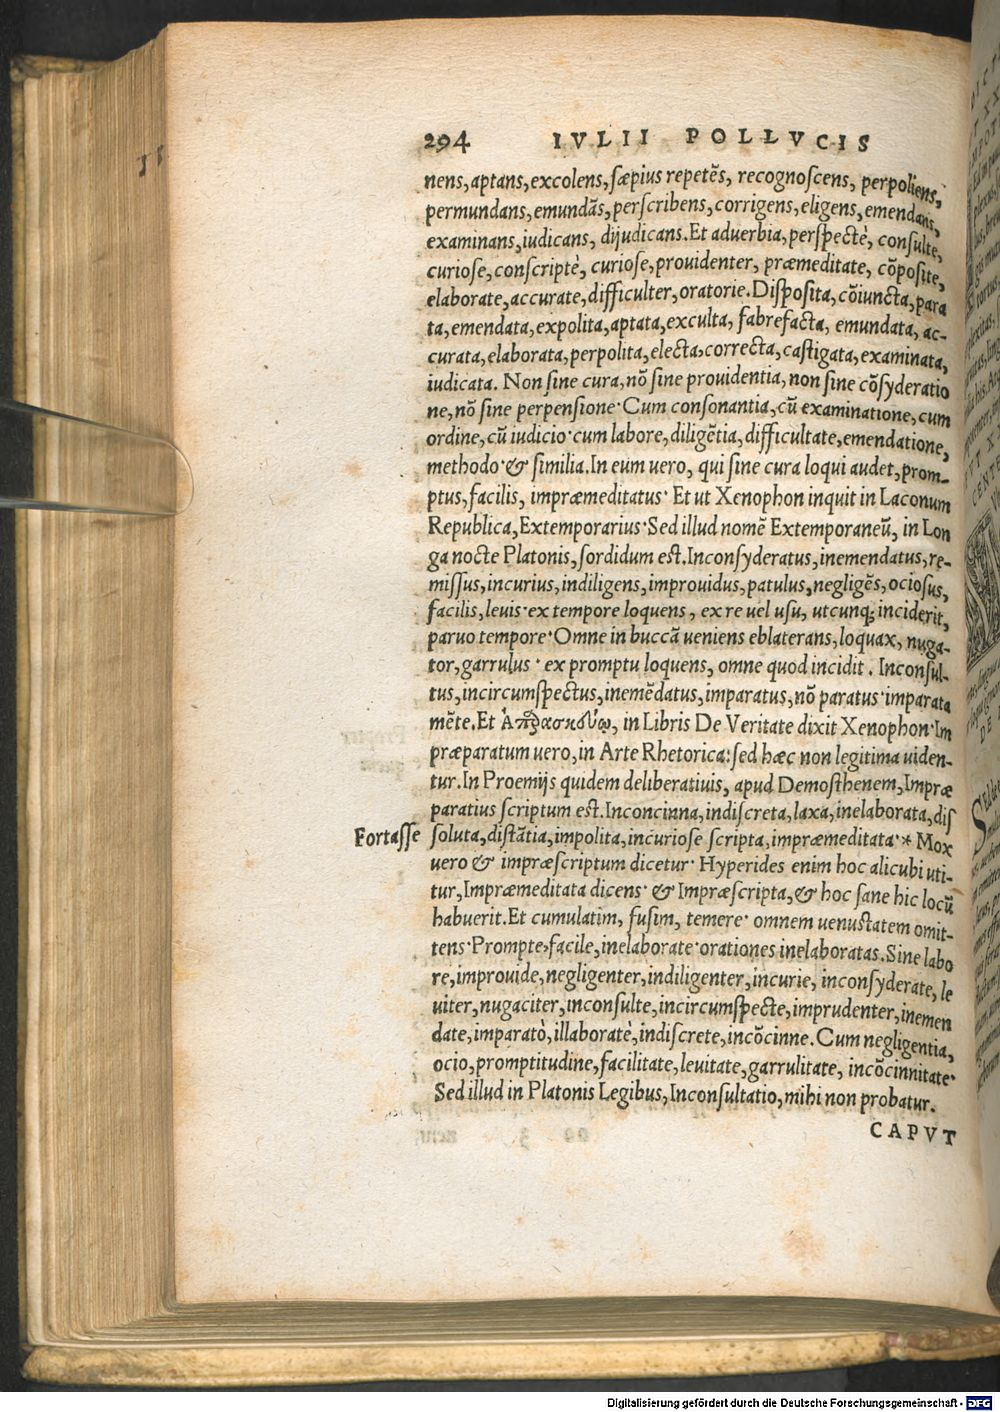 294 IVLII POLLVCIS
nens, aptans, excolens, sæpius repetẽs, recognoscens, perpoliens,
permundans, emundãs, perscribens, corrigens, eligens, emendans,
examinans, iudicans, dijudicans. Et aduerbia, perspectè, consulte,
curiose, conscriptè, curiose, prouidenter, præmeditate, cõposite,
elaborate, accurate, difficulter, oratorie. Disposita, cõiuncta, para
ta, emendata, expolita, aptata, exculta, fabrefacta, emundata, ac-
curata, elaborata, perpolita, electa, correcta, castigata, examinata,
iudicata. Non sine cura, nõ sine prouidentia, non sine cõsyderatio
ne, nõ sine perpensione· Cum consonantia, cũ examinatione, cum
ordine, cũ iudicio· cum labore, diligẽtia, difficultate, emendatione,
methodo· & similia. In eum uero, qui sine cura loqui audet, prom-
ptus, facilis, impræmeditatus· Et ut Xenophon inquit in Laconum
Republica, Extemporarius· Sed illud nomẽ Extemporaneũ, in Lon
ga nocte Platonis, sordidum est. Inconsyderatus, inemendatus, re-
missus, incurius, indiligens, improuidus, patulus, negligẽs, ociosus,
facilis, leuis· ex tempore loquens, ex re uel usu, utcunq; inciderit,
paruo tempore· Omne in buccã ueniens eblaterans, loquax, nuga-
tor, garrulus· ex promptu loquens, omne quod incidit. Inconsul-
tus, incircumspectus, inemẽdatus, imparatus, nõ paratus· imparata
mẽte. Et in Libris De Veritate dixit Xenophon· Im
præparatum uero, in Arte Rhetorica: sed hæc non legitima uiden-
tur. In Proemijs quidem deliberatiuis, apud Demosthenem, Impræ
paratius scriptum est. Inconcinna, indiscreta, laxa, inelaborata, dis
Fortasse soluta, distãtia, impolita, incuriose scripta, impræmeditata· * Mox
uero & impræscriptum dicetur· Hyperides enim hoc alicubi uti-
tur, Impræmeditata dicens· & Impræscripta, & hoc sane hic locũ
habuerit. Et cumulatim, fusim, temere· omnem uenustatem omit-
tens· Prompte, facile, inelaborate· orationes inelaboratas. Sine labo
re, improuide, negligenter, indiligenter, incurie, inconsyderate, le
uiter, nugaciter, inconsulte, incircumspecte, imprudenter, inemen
date, imparatò, illaboratè, indiscrete, incõcinne. Cum negligentia,
ocio, promptitudine, facilitate, leuitate, garrulitate, incõcinnitate·
Sed illud in Platonis Legibus, Inconsultatio, mihi non probatur.
CAPVT
Digitalisierung gefördert durch die Deutsche Forschungsgemeinschaft - DFG